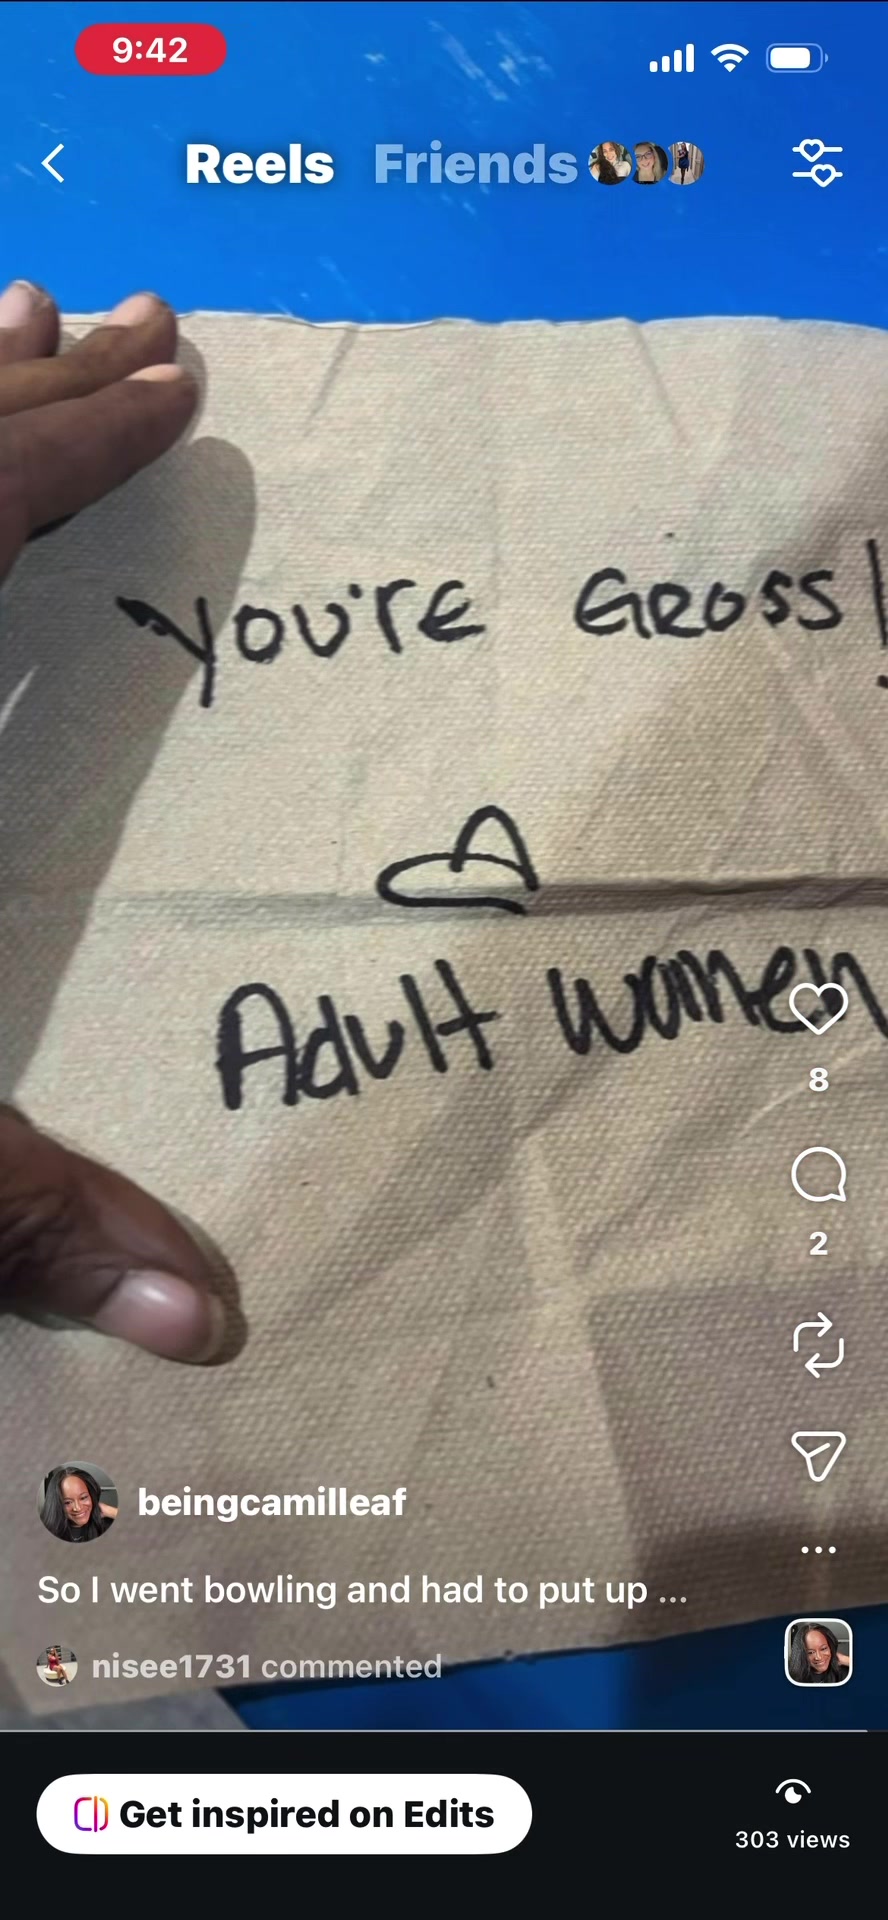 9:42
Reels Friends
You're Gross!
Adult Women
8
2
beingcamilleaf
So I went bowling and had to put up ...
nisee1731 commented
Get inspired on Edits
303 views